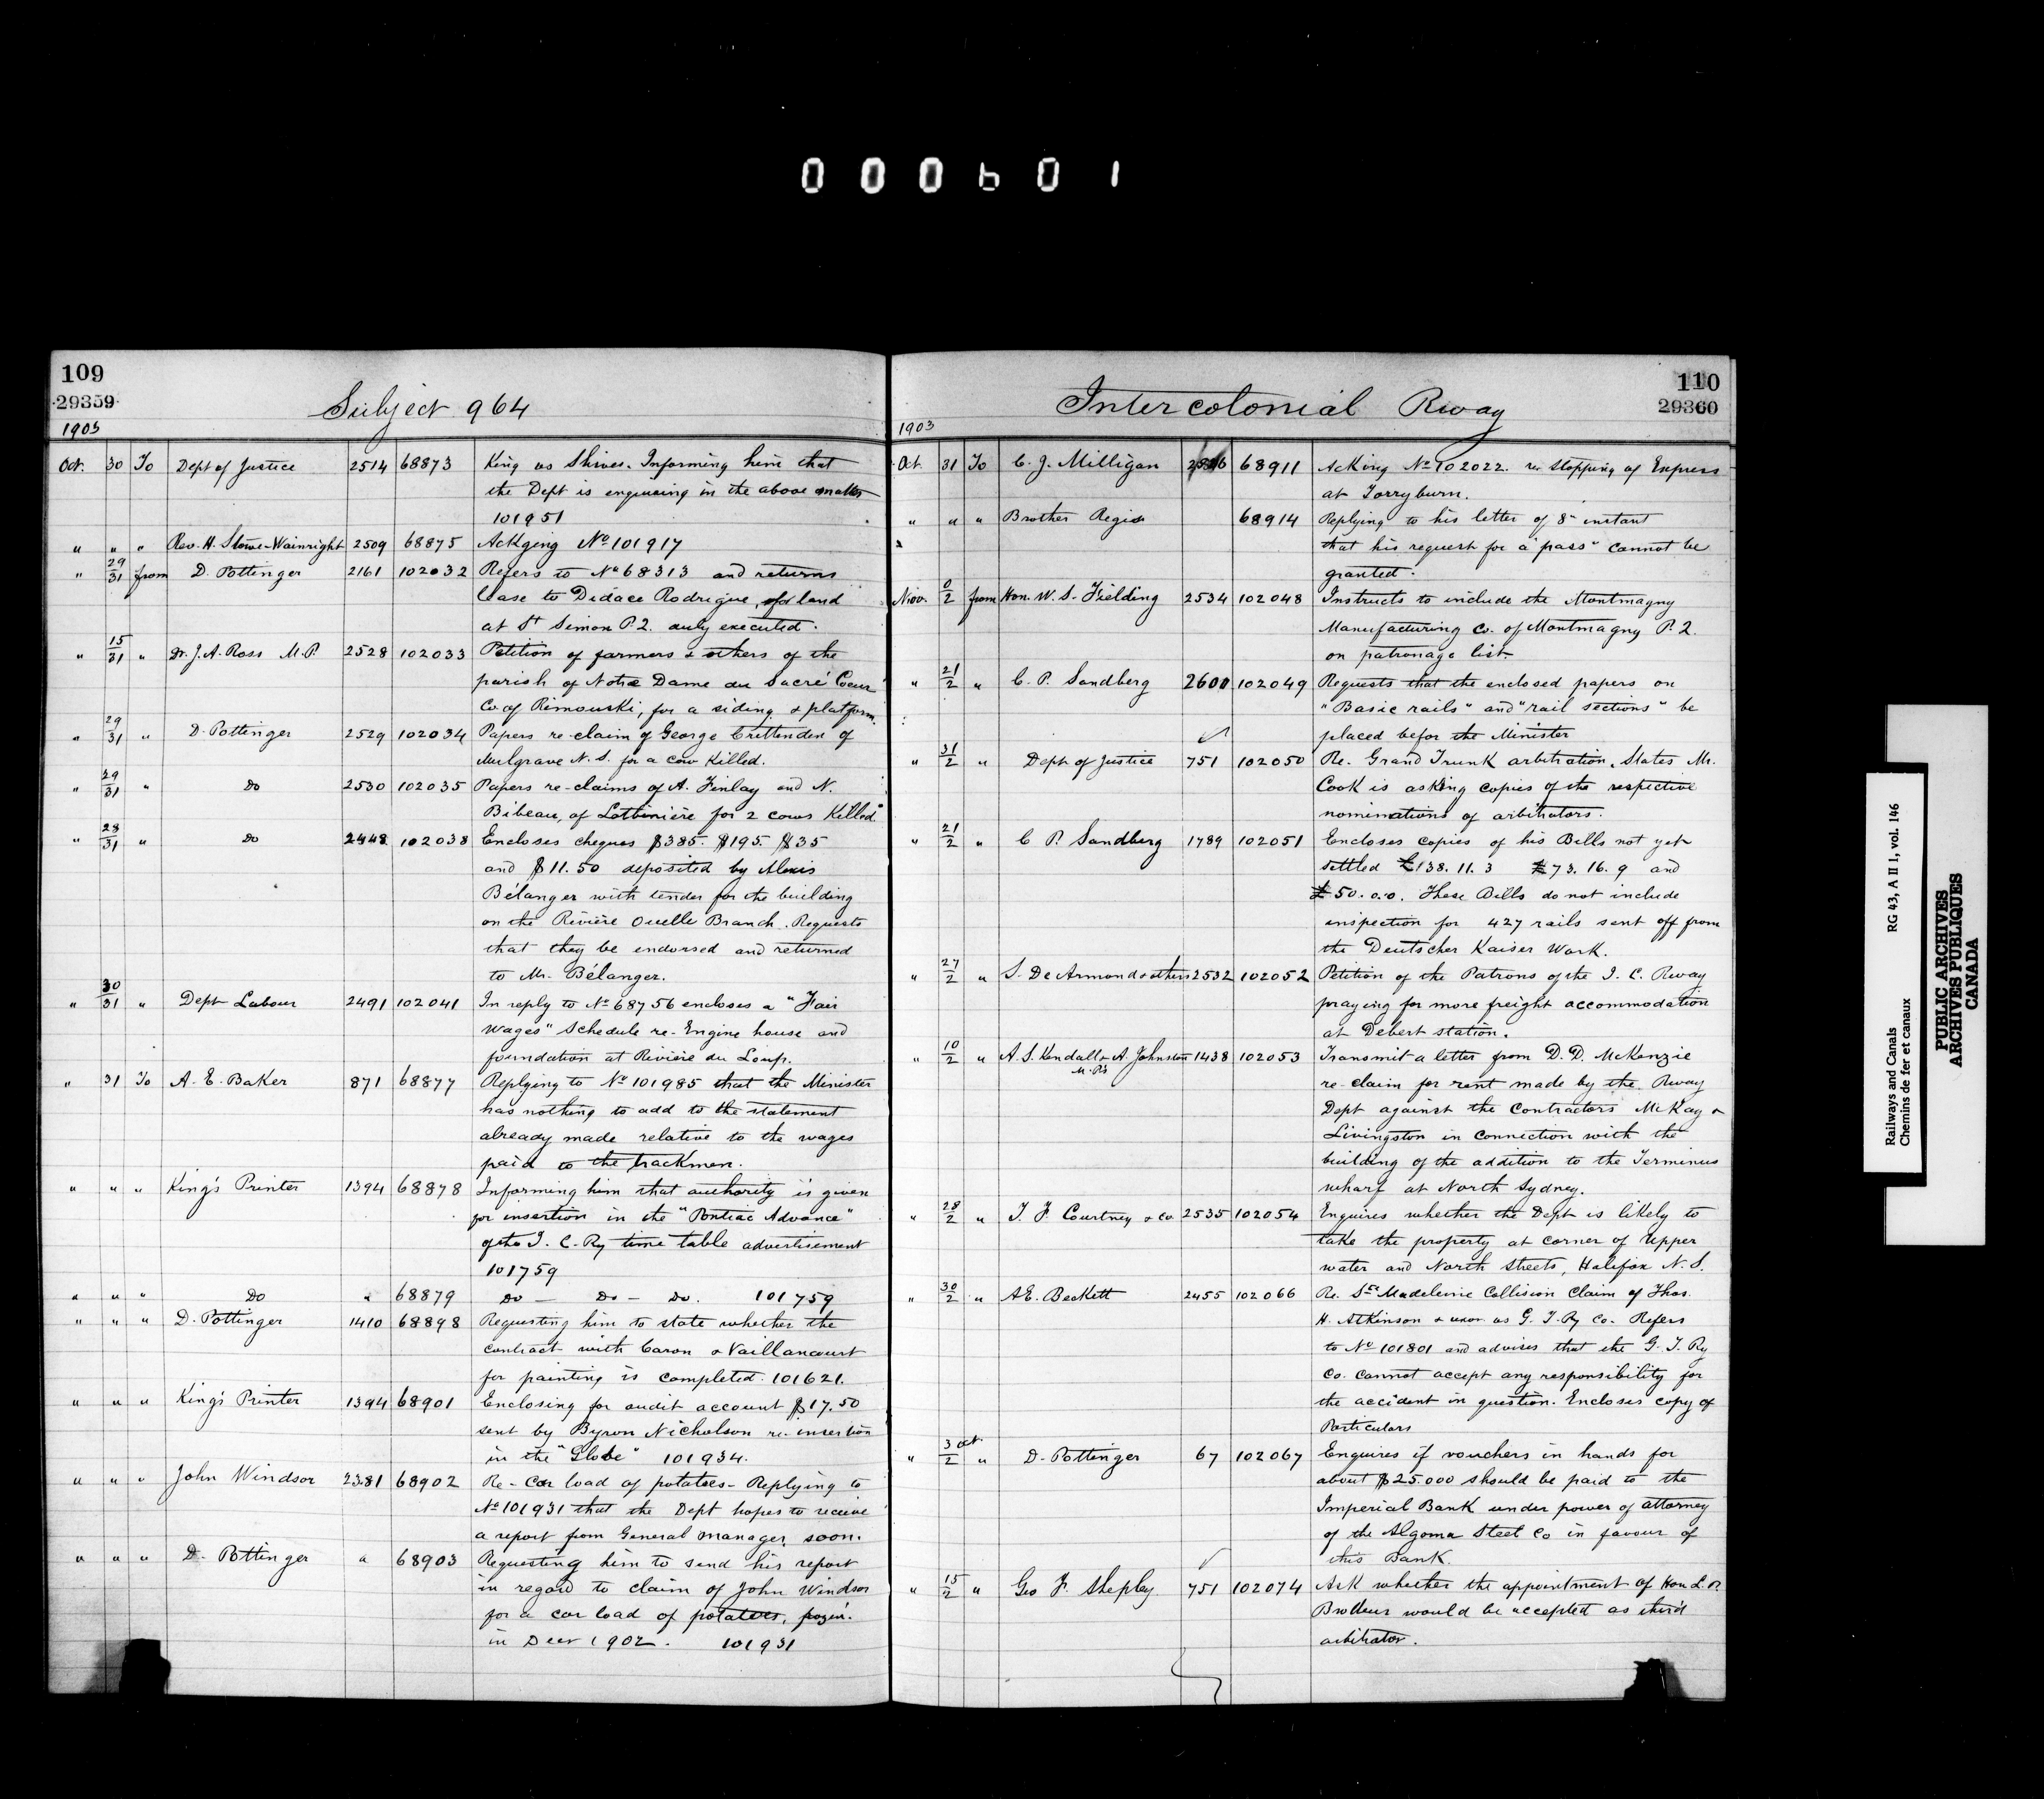 000601
109
29359
Subject 964
1903
Oct. 30 To Dept of Justice 2514 68873 King vs Shives. Informing him that
the Dept is enquiring in the above matter
101951
" " " Rev. H. Stowe-Wainright 2509 68875 Ackging No 101917
" 29/31 from D. Pottinger 2161 102032 Refers to No 68313 and returns
lease to Didace Rodrigue, of land
at St Simon P.2. duly executed.
" 15/31 " Dr. J. A. Ross M.P. 2528 102033 Petition of farmers & others of the
parish of Notre Dame du Sacré Coeur
Co of Rimouski, for a siding & platform.
" 29/31 " D. Pottinger 2529 102034 Papers re-claim of George Crittenden of
Mulgrave N.S. for a cow killed.
" 29/31 " Do 2530 102035 Papers re-claims of A. Finlay and N.
Bibeau, of Lotbinière for 2 cows killed
" 28/31 " Do 2448 102038 Encloses cheques $385. $195. $35
and $11.50 deposited by Alexis
Bélanger with tender for the building
on the Rivière Ouelle Branch. Requests
that they be endorsed and returned
to Mr. Bélanger.
" 30/31 " Dept Labour 2491 102041 In reply to No 68756 encloses a "Fair
Wages" Schedule re-Engine house and
foundation at Rivière du Loup.
" 31 To A. E. Baker 871 68877 Replying to No 101985 that the Minister
has nothing to add to the statement
already made relative to the wages
paid to the trackmen.
" " " King's Printer 1394 68878 Informing him that authority is given
for insertion in the "Pontiac Advance"
of the I. C. Ry time table advertisement
101759
" " " Do " 68879 Do — Do — Do. 101759
" " " D. Pottinger 1410 68898 Requesting him to state whether the
contract with Caron & Vaillancourt
for painting is completed. 101621.
" " " King's Printer 1394 68901 Enclosing for audit account $17.50
sent by Byron Nicholson re-insertion
in the "Globe" 101934.
" " " John Windsor 2381 68902 Re-Car load of potatoes-Replying to
No 101931 that the Dept hopes to receive
a report from General manager, soon.
" " " D. Pottinger " 68903 Requesting him to send his report
in regard to claim of John Windsor
for a car load of potatoes, frozen.
in Decr 1902. 101931
110
29360
Intercolonial Rway
1903
Oct. 31 To C. J. Milligan 68911 Acking No 102022. re. Stopping of Express
at Torryburn.
" " " Brother Regis 68914 Replying to his letter of 8" instant
that his request for a "pass" cannot be
granted.
Nov. 0/2 from Hon. W. S. Fielding 2534 102048 Instructs to include the Montmagny
Manufacturing Co. of Montmagny P.2.
on patronage list.
" 21/2 " C. P. Sandberg 2600 102049 Requests that the enclosed papers on
"Basic rails" and "rail sections" be
placed befor the Minister
" 31/2 " Dept of Justice 751 102050 Re. Grand Trunk arbitration. States Mr.
Cook is asking copies of the respective
nominations of arbitrators.
" 21/2 " C P. Sandberg 1789 102051 Encloses copies of his Bills not yet
settled £138. 11. 3 £73. 16. 9 and
£50. 0.0. These Bills do not include
inspection for 427 rails sent off from
the Deutscher Kaiser Work.
" 27/2 " S. De Armond & others 2532 102052 Petition of the Patrons of the I. C. Rway
praying for more freight accommodation
at Debert station.
" 10/2 " A. S. Kendall & A. Johnston 1438 102053 Transmit a letter from D. D. McKenzie
M.P's
re-claim for rent made by the Rway
Dept against the contractors McKay &
Livingston in connection with the
building of the addition to the Terminus
wharf at North Sydney.
" 28/2 " J. F. Courtney & Co 2535 102054 Enquires whether the Dept is likely to
take the property at corner of Upper
water and North Streets, Halifax N.S.
" 30/2 " A E. Beckett 2455 102066 Re. Ste Madeleine Collision Claim of Thos.
H. Atkinson & uxor. vs G. T. Ry Co. Refers
to No 101801 and advises that the G. T. Ry
Co. cannot accept any responsibility for
the accident in question. Encloses copy of
Particulars
" 3 oct./2 " D. Pottinger 67 102067 Enquires if vouchers in hands for
about $25.000 should be paid to the
Imperial Bank under power of attorney
of the Algoma Steel Co in favour of
this Bank.
" 15/2 " Geo F. Shepley 751 102074 Ask whether the appointment of Hon L. P.
Brodeur would be accepted as third
arbitrator.
Railways and Canals RG 43, A II 1, vol. 146
Chemins de fer et canaux
PUBLIC ARCHIVES
ARCHIVES PUBLIQUES
CANADA